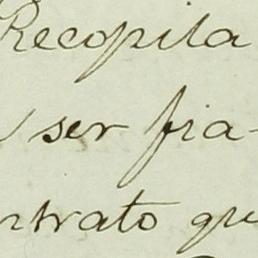 Recopila
ser fia-
ntrato que